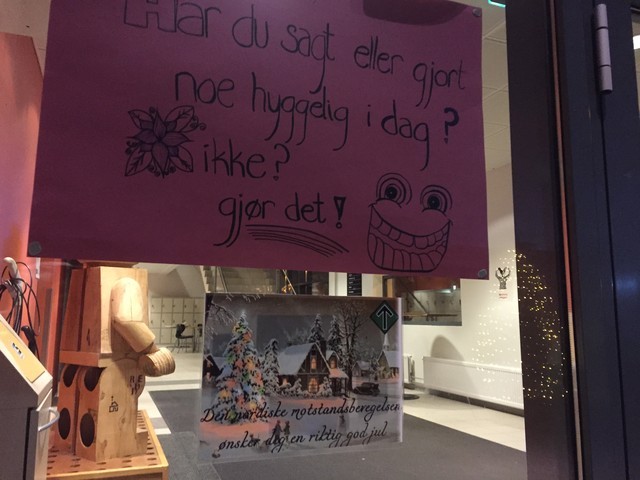 Har du sagt eller gjort
noe hyggelig i dag?
ikke?
gjør det!
Den nordiske motstandsbevegelsen
ønsker deg en riktig god jul